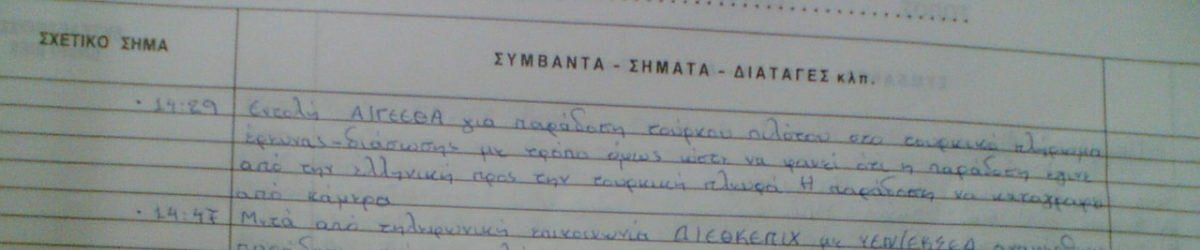 ΣΧΕΤΙΚΟ ΣΗΜΑ
ΣΥΜΒΑΝΤΑ - ΣΗΜΑΤΑ - ΔΙΑΤΑΓΕΣ κλπ.
14:29 Εντολή Α/ΓΕΕΘΑ για παράδοση τούρκου πιλότου στο τουρκικό πλήρωμα
έρευνας-διάσωσης με τρόπο όμως ώστε να φανεί ότι η παράδοση έγινε
από την ελληνική προς την τουρκική πλευρά Η παράδοση να καταγραφεί
από κάμερα
14:47 Μετά από τηλεφωνική επικοινωνία Δ/ΕΘΚΕΠΙΧ με